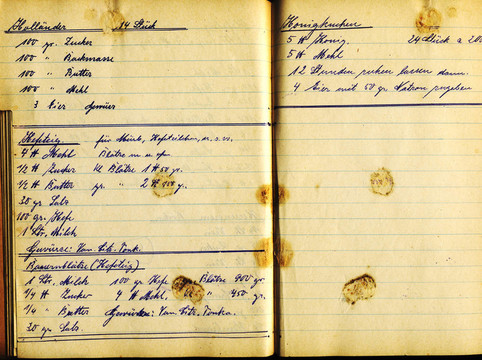 Holländer 14 Stück
100 gr. Zucker
100 " Backmasse
100 " Butter
100 " Mehl
3 Eier Gewürz
Hefeteig. für Mürb, Hefeteilchen, u. s. w.
4 ℔ Mehl Blätze
1/2 ℔ Zucker Kl Blätze 1 ℔ 50 gr.
1/2 ℔ Butter gr. " 2 ℔ gr.
30 gr Salz
100 gr. Hefe
1 Ltr. Milch
Gewürze: Van. Citr. Tonka
Bauernblätze (Hefeteig)
1 Ltr. Milch 100 gr Hefe Blätze 900 gr
3/4 ℔ Zucker 4 ℔ Mehl, Kl " 450 gr.
1/4 " Butter Gewürze: Van. Citr. Tonka.
30 gr Salz.
Honigkuchen
5 ℔ Honig. 24 Stück a 20
5 ℔ Mehl
12 Stunden ruhen lassen dann.
4 Eier mit 50 gr. Natron zugeben